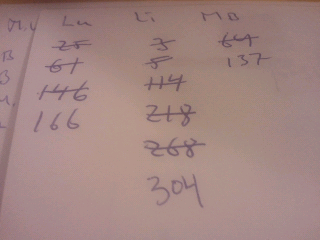 Lu Li MB
25 3 64
61 8 137
146 114
166 218
268
304